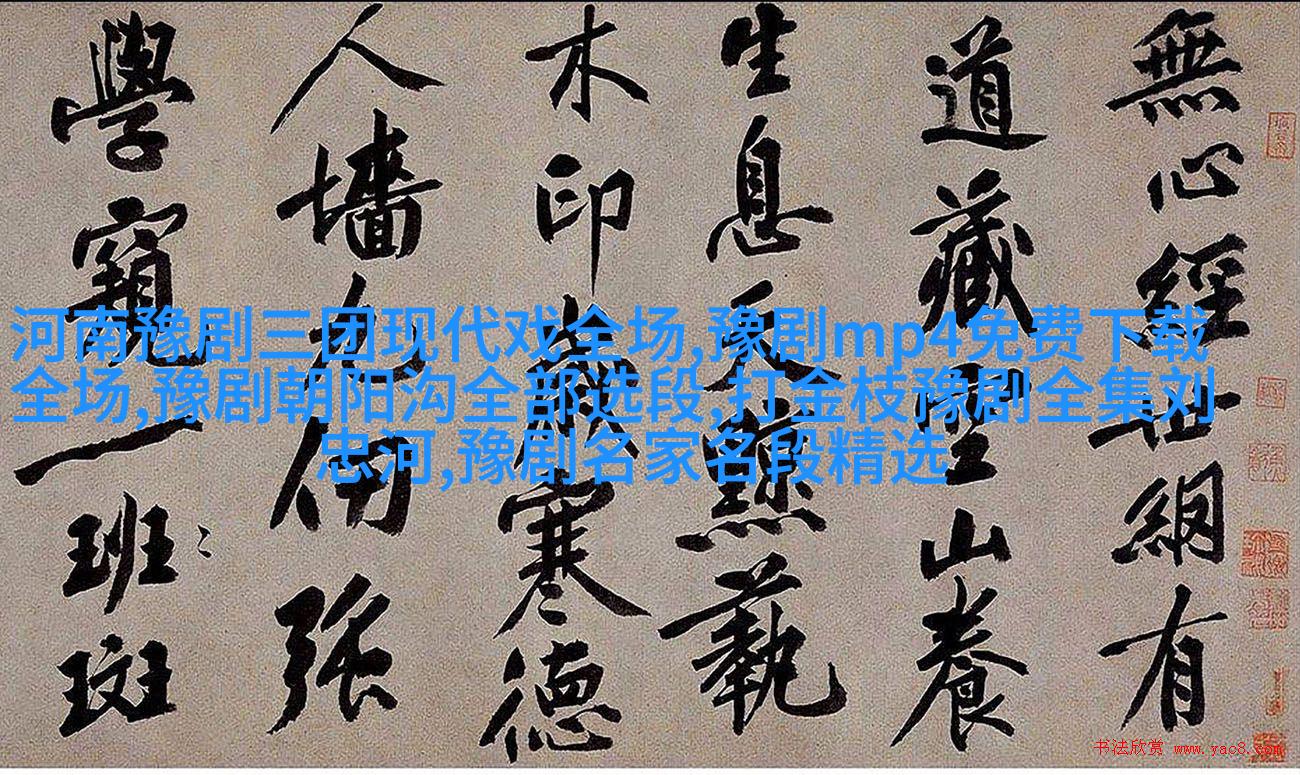 無心經世網有
道藏丘山養
生息天黥蓺
木印歲寒德
人墻九仞強
學窺一班斑
河南豫剧三团现代戏全场,豫剧mp4免费下载
全场,豫剧朝阳沟全部选段,打金枝豫剧全集刘
忠河,豫剧名家名段精选
书法欣赏 www.yac8.com